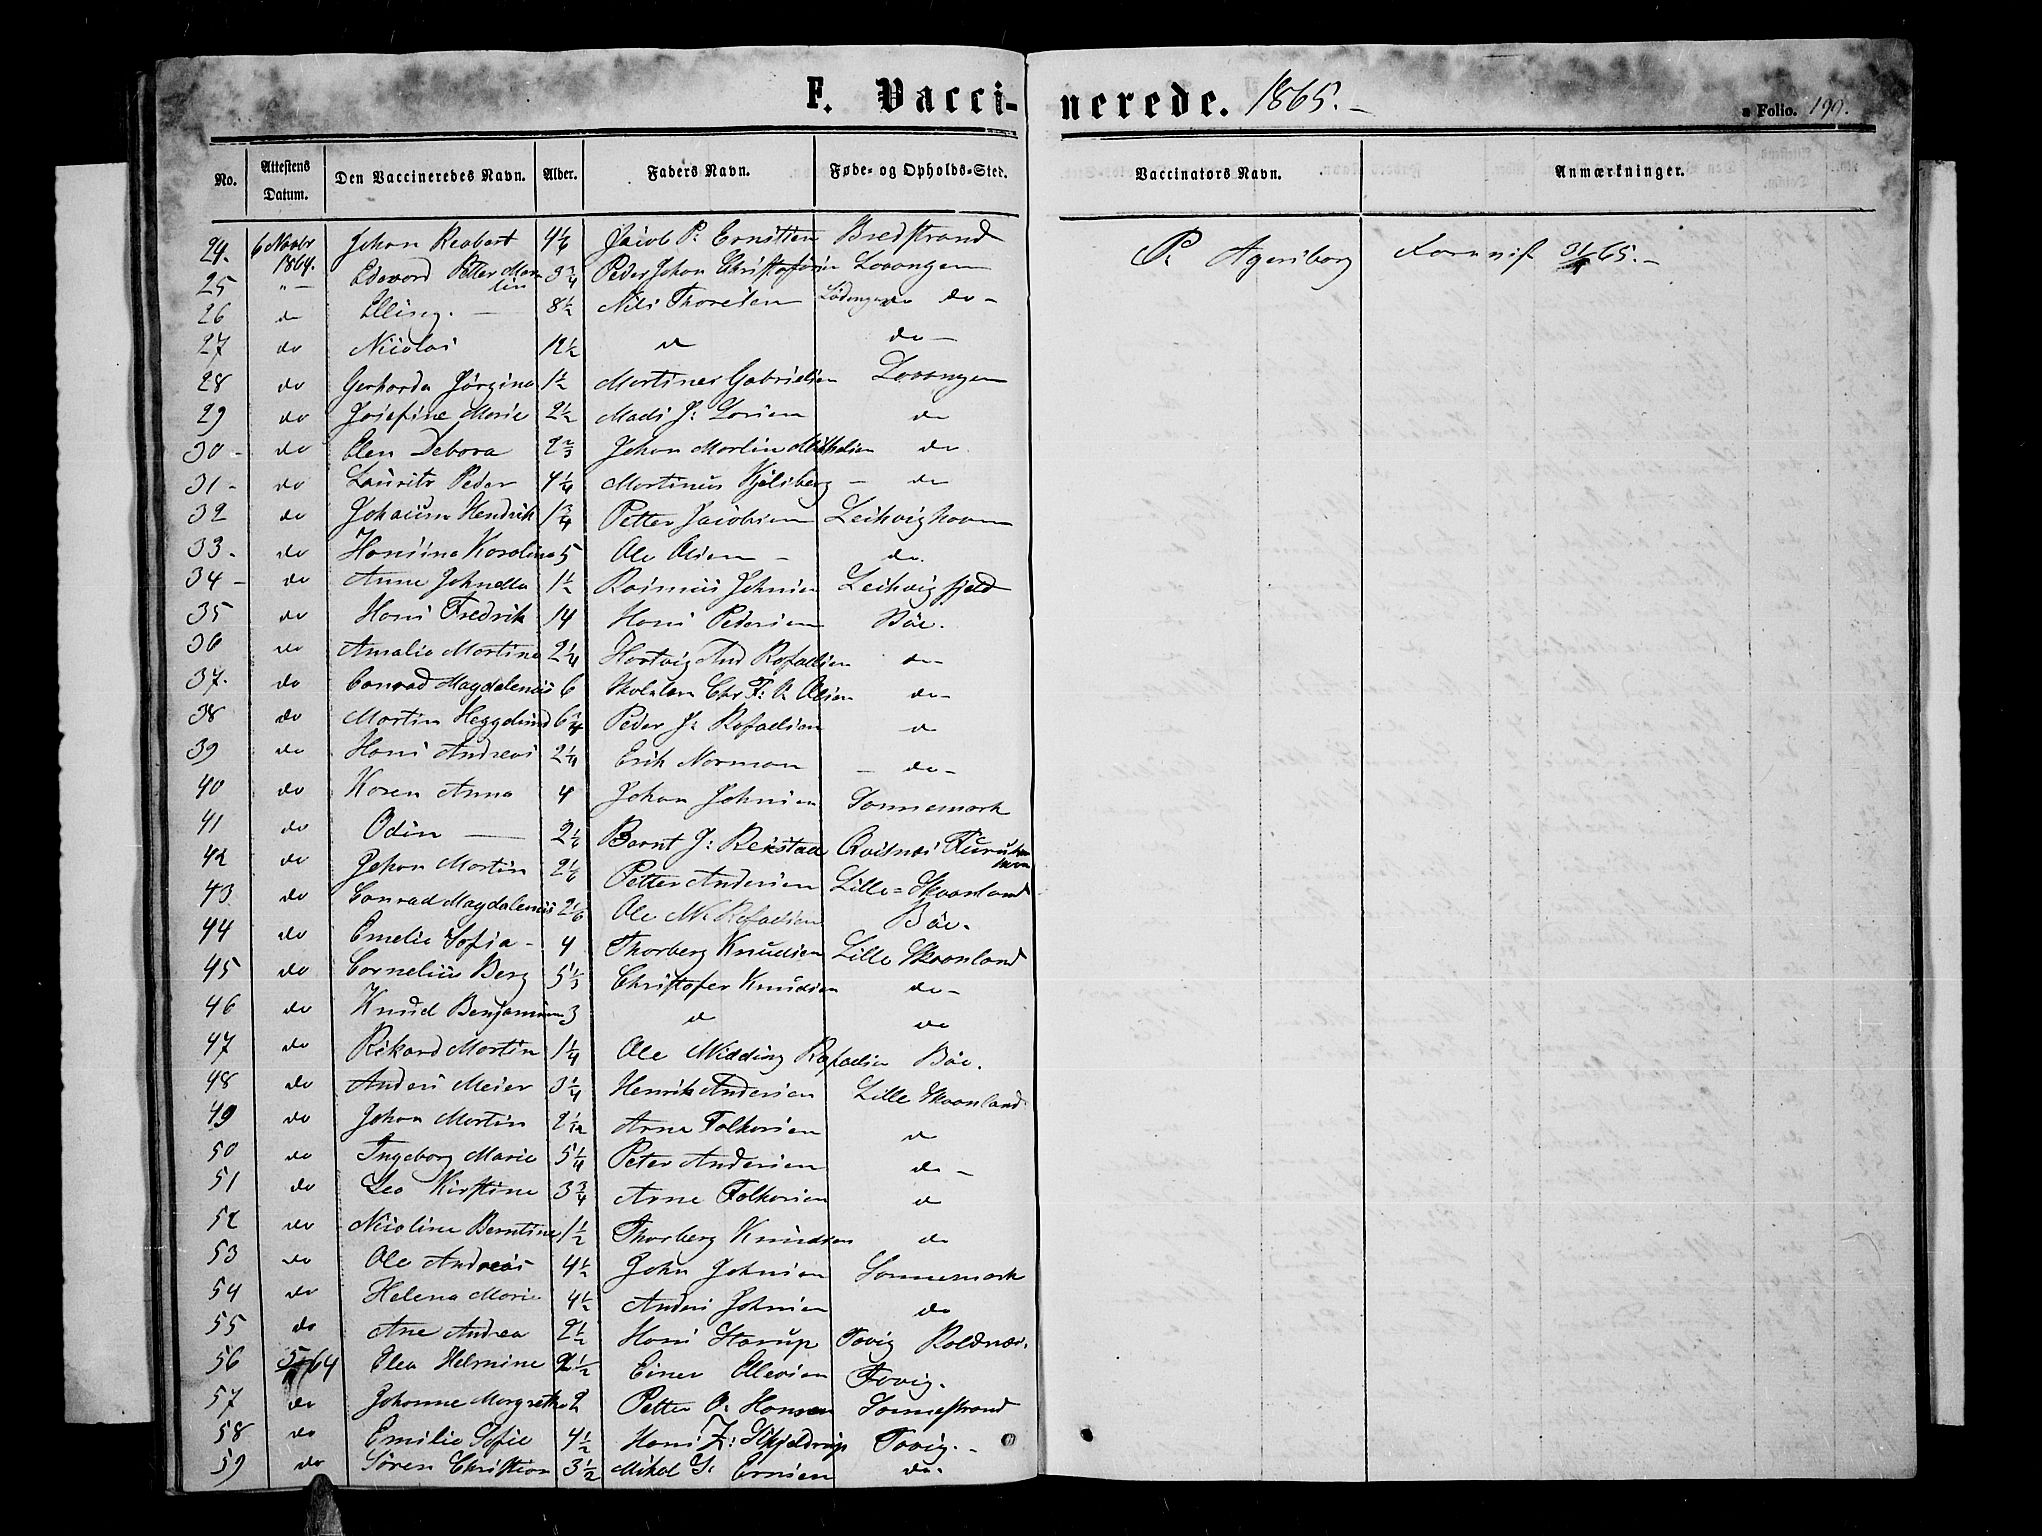 F. Vaccinerede. 1865.-
a Folio. 190.
No. Attestens Datum. Den Vaccineredes Navn. Alder. Faders Navn. Føde- og Opholds-Sted. Vaccinators Navn. Anmærkninger.
24. 6 Novbr 1864. Johan Reabert 4 1/6 Jacob P. Ernstsen Bredstrand P. Agersborg 31/65.-
25 "- Edevard Petter Martin 3 3/4 Peder Johan Christofersen Lavangen
26 do Elling. - 8 1/2 Nils Thoresen Lødingen do -
27 do Nicolai 12 1/2 do do -
28 do Gerharda Jørgina 1 1/2 Martines Gabrielsen Lavangen
29 do Josefine Marie 2 1/2 Mads J: Larsen do
30 - do Elen Debora 2 2/3 Johan Martin Mikkelsen do
31 - do Lauritz Peder 4 1/4 Martinus Kjelsberg - do
32 do Johan Hendrik 1 3/4 Petter Jacobsen Leikvighavn
33 - do Hansina Karolina 5 Ole Olsen - do.
34 - do Anne Johnella 1 1/2 Rasmus Johnsen Leikvigfjeld
35 do Hans Fredrik 14 Hans Pedersen Bøe.
36 do Amalie Martina 2 1/4 Hartvig And Rafaelsen do-
37. do Conrad Magdalenus 6 Skolelær Chr F: R Olsen do-
38 do Martin Heggelund 6 3/4 Peder J: Rafaelsen do
39 do Hans Andreas 2 1/4 Erik Norman - do-
40 do Karen Anna 4 Johan Johnsen Sannemark
41 do Odin - 2 1/6 Bernt J: Reistad Qvitnæs
42 do Johan Martin 2 1/6 Petter Andersen Lille=Skaanland
43 do Conrad Magdalenus 2 1/6 Ole M Rafaelsen Bøe.
44 do Emelie Sofia - 4 Thorberg Knudsen Lille Skaanland
45 do Cornelius Berg 5 1/3 Christofer Knudsen do-
46 do Knud Benjamin 3 do do
47 do Rikard Martin 1 1/4 Ole Midding Rafaelsen Bøe.
48 do Anders Meier 3 1/4 Henrik Andersen Lille Skaanland
49 do Johan Martin 2 1/12 Arne Falkersen do
50 do Ingeborg Marie 5 1/4 Peter Andersen do -
51 do Lea Kirstine 3 3/4 Arne Falkersen do
52 do Nicoline Berntine 1 1/2 Thorberg Knudsen do
53 do Ole Andreas 4 1/2 John Johnsen Sannemark
54 do Helena Marie 4 1/2 Anders Johnsen do
55 do Ane Andrea 2 1/2 Hans Starup Tovig Roldnæs.
56 64 Elea Helmine 2 1/2 Einer Ellevsen Tovig.
57 do Johanne Margrethe 2 Petter O. Hansen Sannestrand
58 do Emilie Sofie 4 1/2 Hans Z: Skjeldrup Tovig. -
59 do Søren Christian 3 1/2 Mikal S. Ernsen do-